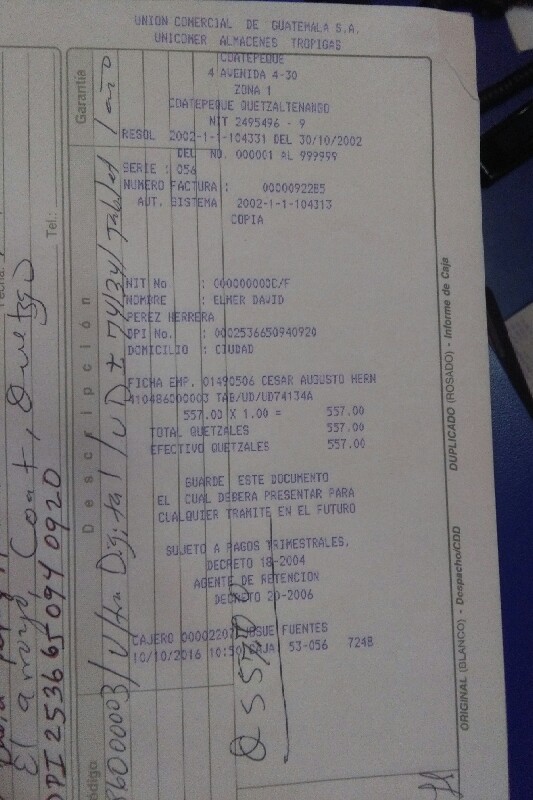 UNION COMERCIAL DE GUATEMALA S.A.
UNICOMER ALMACENES TROPIGAS
COATEPEQUE
4 AVENIDA 4-30
ZONA 1
COATEPEQUE QUETZALTENANGO
NIT 2495496 - 9
RESOL 2002-1-1-104331 DEL 30/10/2002
DEL NO. 000001 AL 999999
SERIE : 056
NUMERO FACTURA : 0000092285
AUT. SISTEMA 2002-1-1-104313
COPIA
NIT No : 000000000C/F
NOMBRE : ELMER DAVID
PEREZ HERRERA
DPI No. : 0002536650940920
DOMICILIO : CIUDAD
FICHA EMP. 01490506 CESAR AUGUSTO HERN
410486000003 TAB/UD/UD74134A
557.00 X 1.00 = 557.00
TOTAL QUETZALES 557.00
EFECTIVO QUETZALES 557.00
GUARDE ESTE DOCUMENTO
EL CUAL DEBERA PRESENTAR PARA
CUALQUIER TRAMITE EN EL FUTURO
SUJETO A PAGOS TRIMESTRALES,
DECRETO 18-2004
AGENTE DE RETENCION
DECRETO 20-2006
CAJERO 00002207 JOSUE FUENTES
10/10/2016 10:50 CAJA 53-056 7248
Garantía
1 año
Descripción
Código
86000003/Ultra Digital/UD+74134/Tablet
Tel.:
El arroyo, Coat, Quetgo
DPI 2536650940920
DUPLICADO (ROSADO) - Informe de Caja
ORIGINAL (BLANCO) - Despacho/CDD